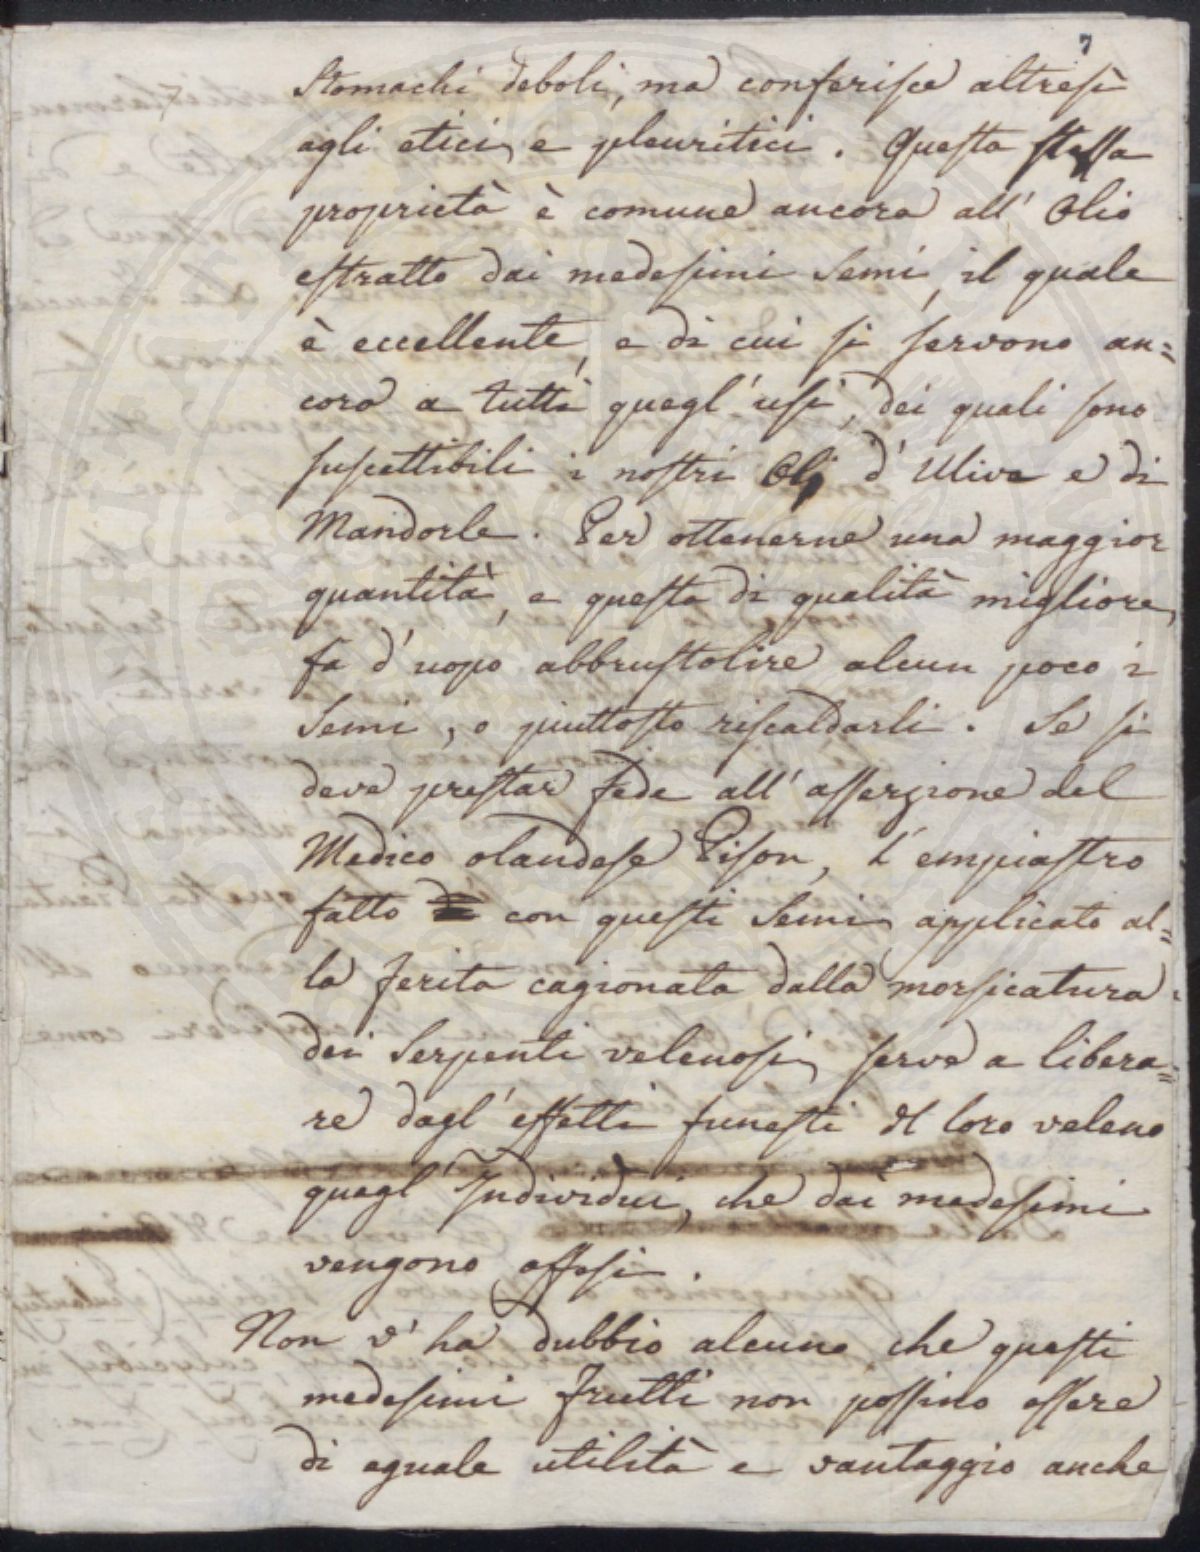 7
Stomachi deboli, ma conferisce altresì
agli etici, e pleuritici. Questa stessa
proprietà è comune ancora all' Olio
estratto dai medesimi Semi, il quale
è eccellente, e di cui si servono an=
cora a tutti quegl' usi, dei quali sono
suscettibili i nostri Olj d' Uliva e di
Mandorle. Per ottenerne una maggior
quantità, e questa di qualità migliore,
fa d' uopo abbrustolire alcun poco i
Semi, o piuttosto riscaldarli. Se si
deve prestar fede all' asserzione del
Medico olandese Pison, l' empiastro
fatto con questi Semi, applicato al=
la ferita cagionata dalla morsicatura
dei Serpenti velenosi, serve a libera=
re dagl' effetti funesti del loro veleno
quegl' Individui, che dai medesimi
vengono offesi.
Non v' ha dubbio alcuno che questi
medesimi frutti non possino essere
di eguale utilità e vantaggio anche